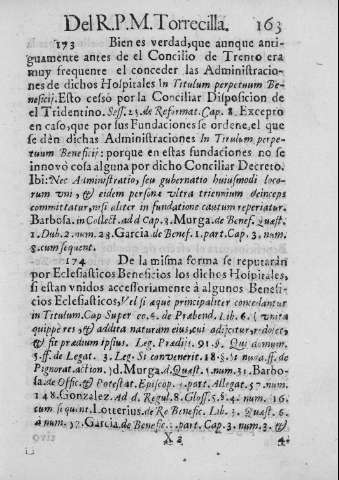 Del R.P.M. Torrecilla. 163
173 Bien es verdad, que aunque anti-
guamente antes de el Concilio de Trento era
muy frequente el conceder las Administracio-
nes de dichos Hospitales In Titulum perpetuum Be-
neficij. Esto cessò por la Conciliar Disposicion de
el Tridentino. Sess. 25. de Reformat. Cap. 8. Excepto
en caso, que por sus Fundaciones se ordene, el que
se dèn dichas Administraciones In Titulum perpe-
tuum Beneficij: porque en estas fundaciones no se
innovò cosa alguna por dicho Conciliar Decreto.
Ibi: Nec Administratio, seu gubernatio huiusmodi loco-
rum vni, & eidem personæ vltra triennium deinceps
committatur, nisi aliter in fundatione cautum reperiatur.
Barbosa. in Collect. ad d Cap. 3. Murga. de Benef. Quæst.
1. Dub. 2. num. 23. Garcia de Benef. 1. part. Cap. 3. num.
3. cum sequent.
174 De la misma forma se reputaràn
por Eclesiasticos Beneficios los dichos Hospitales,
si estàn vnidos accessoriamente à algunos Benefi-
cios Eclesiasticos, Vel si æquè principaliter concedantur
in Titulum. Cap Super eo. 4. de Præbend. Lib. 6. ( vnita
quippè res, & addita naturam eius, cui adijcitur, redolet,
& fit prædium ipsius. Leg. Prædijs. 91. §. Qui domum.
5. ff. de Legat. 3. Leg. Si convenerit. 18. §. si nuda. ff. de
Pignorat. action. ) d. Murga. d. Quæst. 1. num. 31. Barbo-
sa. de Offic. & Potestat. Episcop. 3. part. Allegat. 57. num.
148. Gonzalez. Ad d. Regul. 8. Gloss. 5. §. 4. num. 16.
cum sequent. Lotterius. de Re Benefic. Lib. 1. Quæst. 6.
à num. 37. Garcia. de Benefic. 1. part. Cap. 3. num. 3. &
X 2 4.